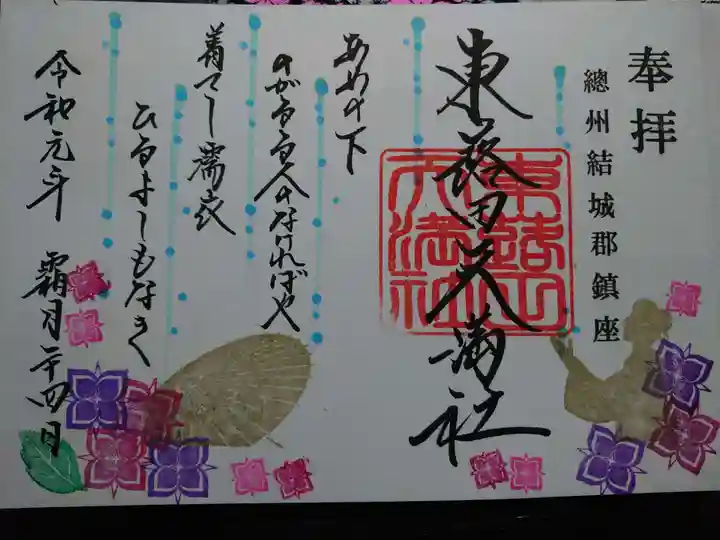 奉拝
總州結城郡鎮座
東蕗田天満社
東蕗田
天満社
あめの下
のがるる人のなければや
着てし濡衣
ひるよしもなき
令和元年 霜月二十四日